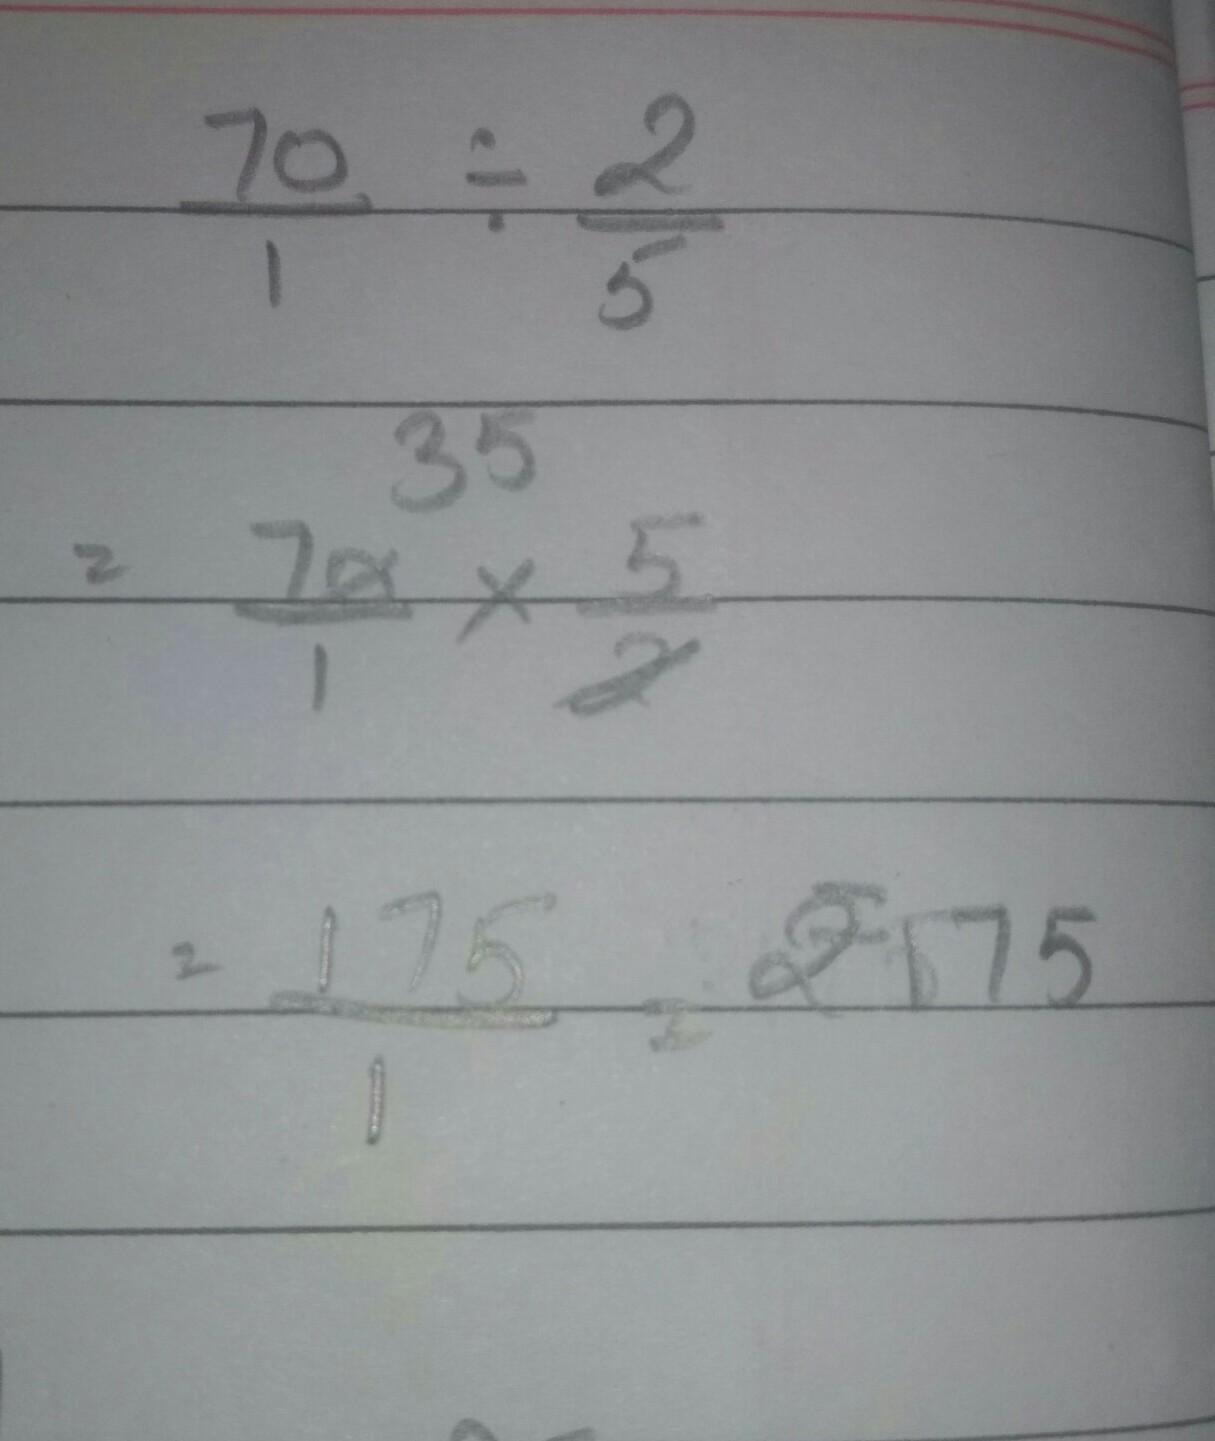 70/1 ÷ 2/5
35
= 70/1 × 5/2
= 175/1 = 175